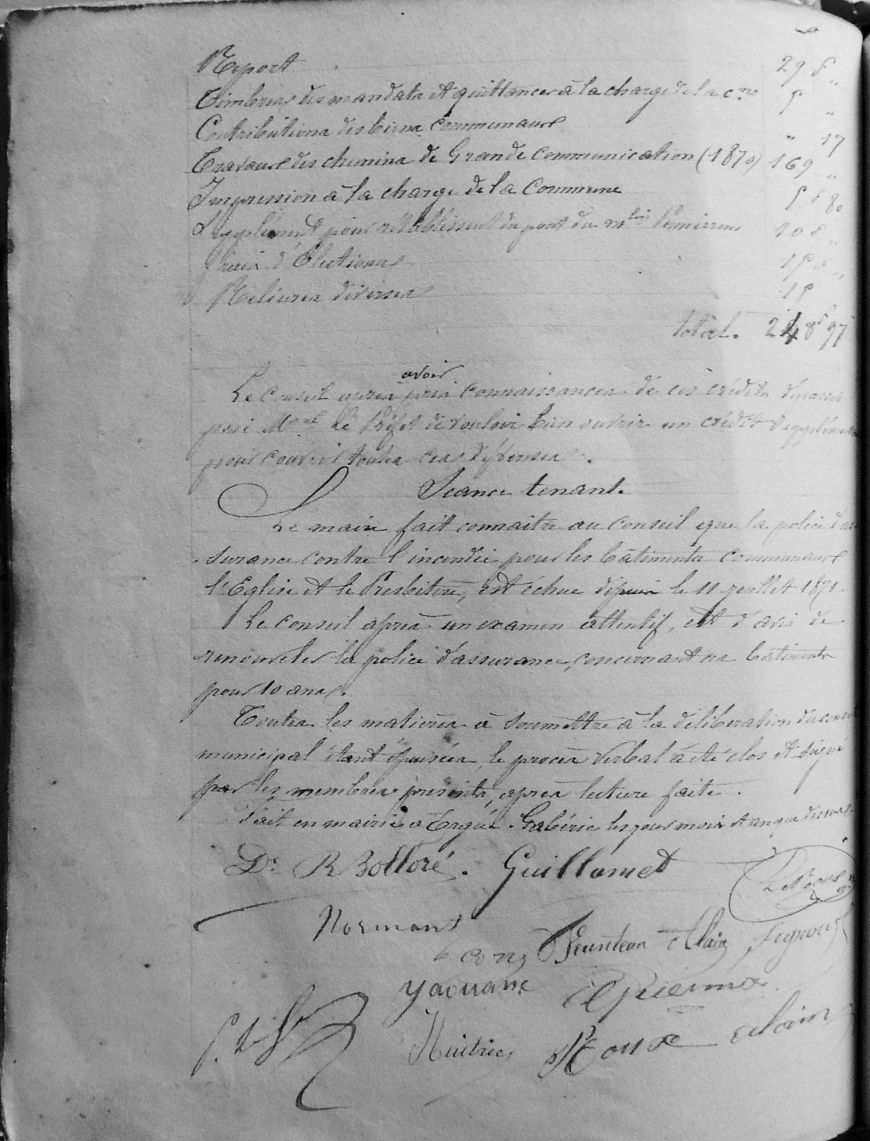 Report 29 f "
Timbres des mandats et quittances à la charge de la cne 5 "
Contributions des biens communaux " 17
Travaux des chemins de Grande communication (1870) 169 "
Impression à la charge de la Commune 5 f 80
Supplément pour rétablissent du pont du mlin 10 f "
frais d'Elections 15 f "
Reliures diverses 15
total. 248 f 97
Le Conseil après avoir pris connaissances de ces crédits
prie Mr le Préfet de vouloir bien ouvrir un crédit
pour couvrir toutes ces dépenses.
Séance tenant.
Le maire fait connaitre au Conseil que la police d'as
surance contre l'incendie pour les bâtiments communaux
l'Eglise et le Presbitère, est échue depuis le 11 juillet 1871.
Le conseil après un examen attentif, est d'avis de
renouveler la police d'assurance, concernant ces bâtiments
pour 10 ans.
Toutes les matières à soumettre à la délibération du conseil
municipal étant épuisées, le procès verbal a été clos et signé
par les membres présents, après lecture faite.
Fait en mairie à Ergué-Gabéric les jour mois et an que dessus.
Dr R Bolloré. Guillamet
Normant
Jeunteon Alain Signour
Yaouanc
Huitric Alain